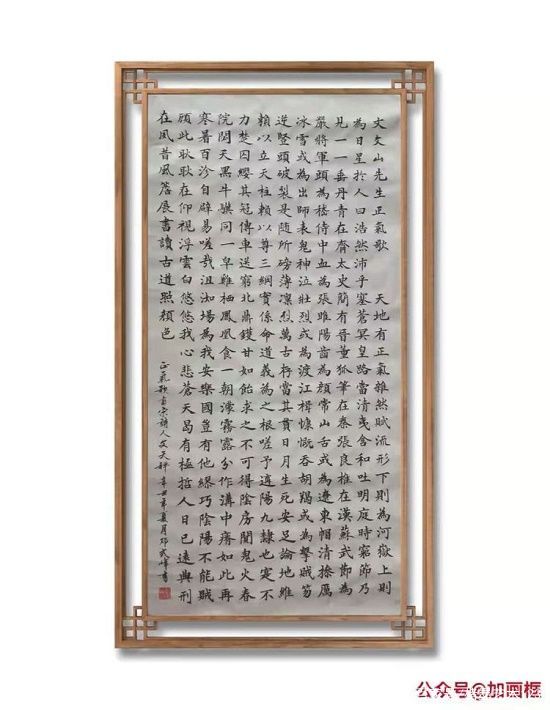 文文山先生正氣歌　天地有正氣雜然賦流形下則為河嶽上則
為日星於人曰浩然沛乎塞蒼冥皇路當清夷含和吐明庭時窮節乃
見一一垂丹青在齊太史簡在晉董狐筆在秦張良椎在漢蘇武節為
嚴將軍頭為嵇侍中血為張睢陽齒為顏常山舌或為遼東帽清操厲
冰雪或為出師表鬼神泣壯烈或為渡江楫慷慨吞胡羯或為擊賊笏
逆豎頭破裂是氣所磅薄凜烈萬古存當其貫日月生死安足論地維
賴以立天柱賴以尊三綱實係命道義為之根嗟予遘陽九隸也實不
力楚囚纓其冠傳車送窮北鼎鑊甘如飴求之不可得陰房闃鬼火春
院閟天黑牛驥同一皁雞栖鳳凰食一朝濛霧露分作溝中瘠如此再
寒暑百沴自辟易嗟哉沮洳場為我安樂國豈有他繆巧陰陽不能賊
顧此耿耿在仰視浮雲白悠悠我心悲蒼天曷有極哲人日已遠典刑
在夙昔風簷展書讀古道照顏色
正氣歌南宋詩人文天祥辛丑年夏月邓武峰書
公众号@加画框